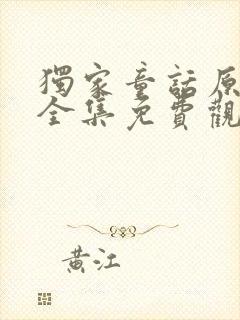 獨家童話原
全集免費觀
黃江